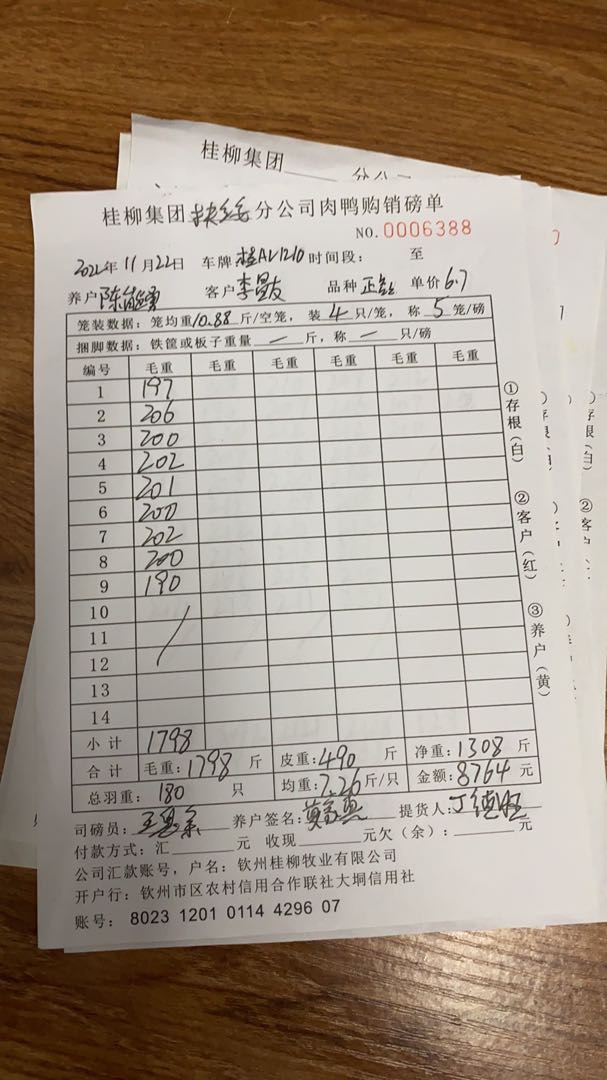 桂柳集团 分公司
桂柳集团 扶绥 分公司肉鸭购销磅单
NO. 0006388
2022年11月22日 车牌 桂AV1210 时间段: 至
养户 陈能 客户 李 品种 正 单价 6.7
笼装数据: 笼均重10.88斤/空笼, 装4只/笼, 称5笼/磅
捆脚数据: 铁筐或板子重量 — 斤, 称 — 只/磅
编号 毛重 毛重 毛重 毛重 毛重 毛重
1 197
2 206
3 200
4 202
5 201
6 200
7 202
8 200
9 190
10
11
12
13
14
小计 1798
合计 毛重:1798 斤 皮重:490 斤 净重:1308 斤
总羽重: 180 只 均重:7.26斤/只 金额:8764元
司磅员: 王 养户签名: 莫 提货人: 丁德旺
付款方式: 汇 元 收现 元欠(余): 元
公司汇款账号, 户名: 钦州桂柳牧业有限公司
开户行: 钦州市区农村信用合作联社大垌信用社
账号: 8023 1201 0114 4296 07
①存根(白)
②客户(红)
③养户(黄)